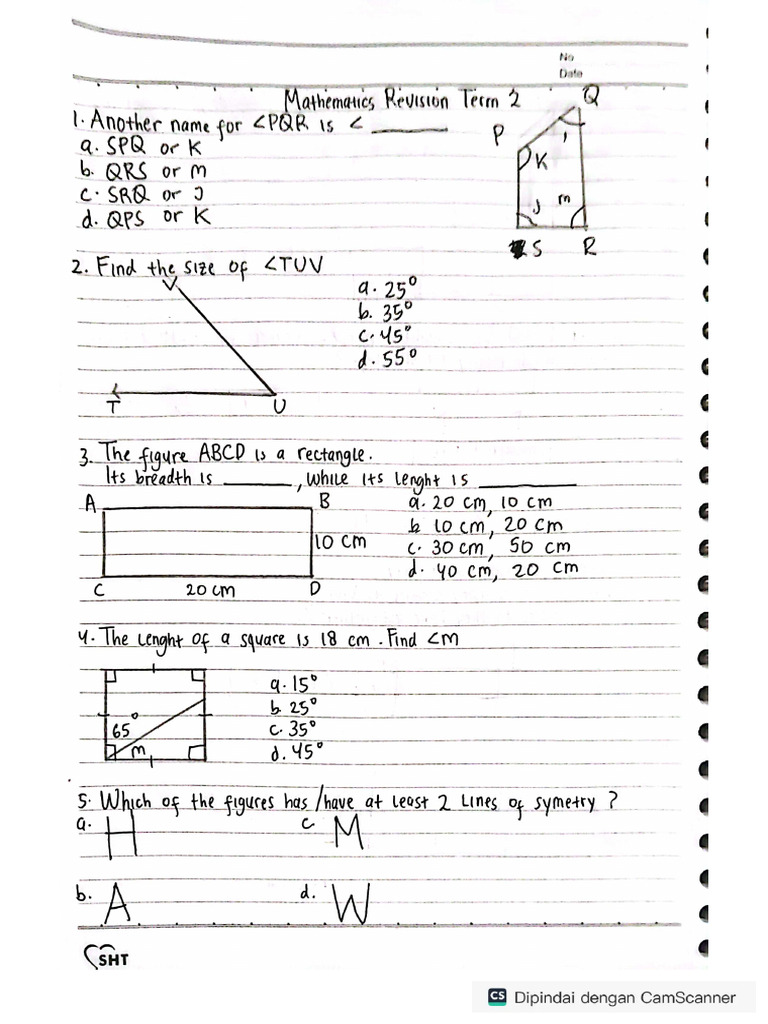 No
Date
Mathematics Revision Term 2
1. Another name for ∠PQR is ∠ ______
a. SPQ or K
b. QRS or M
c. SRQ or J
d. QPS or K
P
Q
K
I
J
m
S
R
2. Find the size of ∠TUV
a. 25°
b. 35°
c. 45°
d. 55°
V
T
U
3. The figure ABCD is a rectangle.
Its breadth is ______, while its lenght is ______
A
B
10 cm
C
20 cm
D
a. 20 cm, 10 cm
b. 10 cm, 20 cm
c. 30 cm, 50 cm
d. 40 cm, 20 cm
4. The lenght of a square is 18 cm. Find ∠M
65°
m
a. 15°
b. 25°
c. 35°
d. 45°
5. Which of the figures has/have at least 2 lines of symetry ?
a. H
c. M
b. A
d. W
SHT
CS Dipindai dengan CamScanner